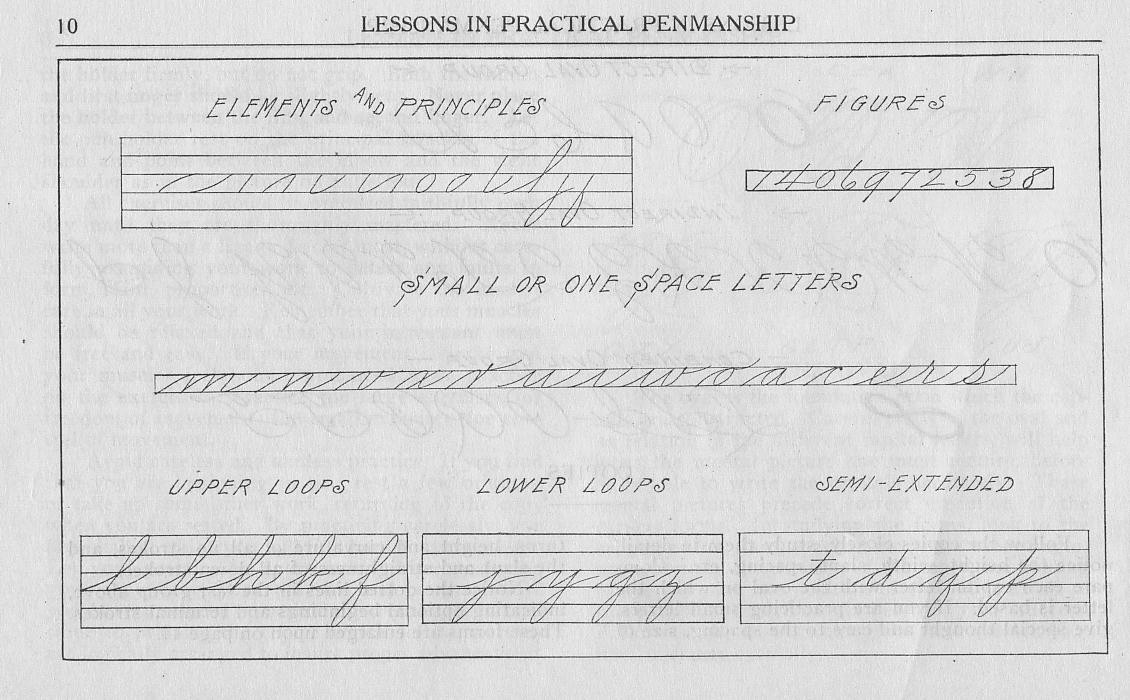 10 LESSONS IN PRACTICAL PENMANSHIP
ELEMENTS AND PRINCIPLES
FIGURES
1 4 0 6 9 7 2 5 3 8
SMALL OR ONE SPACE LETTERS
m n v x r u i w o a c e r s
UPPER LOOPS
LOWER LOOPS
SEMI-EXTENDED
l b h k f
j y g z
t d q p